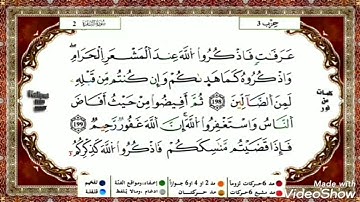 حِزْب 3
سُورَةُ البَقَرَة 2
عَرَفَٰتٖ فَاذْكُرُوا اللَّهَ عِندَ الْمَشْعَرِ الْحَرَامِ
وَاذْكُرُوهُ كَمَا هَدَىٰكُمْ وَإِن كُنتُم مِّن قَبْلِهِ
لَمِنَ الضَّآلِّينَ 198 ثُمَّ أَفِيضُوا مِنْ حَيْثُ أَفَاضَ
النَّاسُ وَاسْتَغْفِرُوا اللَّهَ إِنَّ اللَّهَ غَفُورٌ رَّحِيمٌ 199
فَإِذَا قَضَيْتُم مَّنَٰسِكَكُمْ فَاذْكُرُوا اللَّهَ كَذِكْرِكُمْ
مد 6 حركات لزوما
مد 2 أو 4 أو 6 جوازا
إخفاء، ومواقع الغنة
تفخيم
مد حركتان
إدغام، وما لا يلفظ
قلقلة
Made with
VideoShow